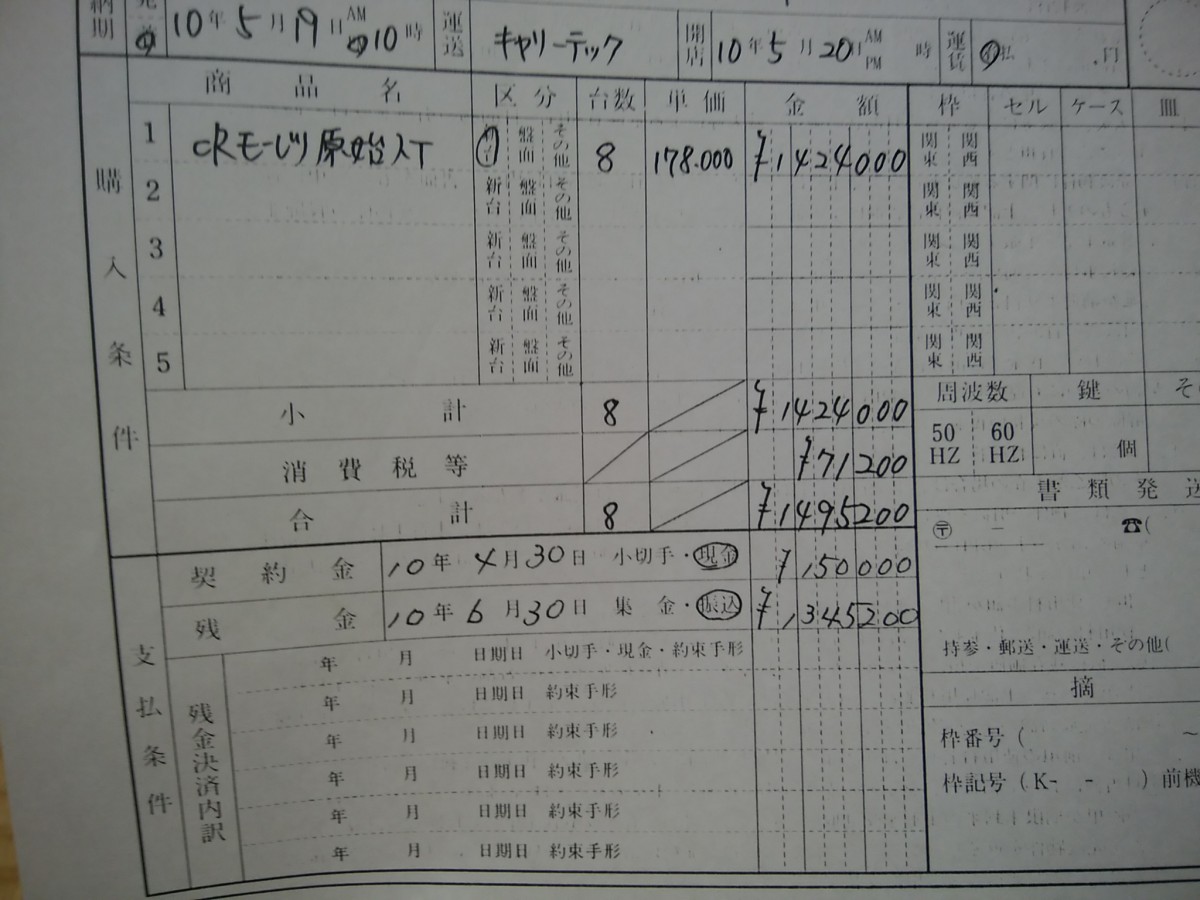 納期 発 着 10年5月19日 AM 10時 運送 キャリーテック 開店 10年5月20日 AM PM 時 運賃 払 円
購入条件 商品名 区分 台数 単価 金額 枠 セル ケース 皿
1 CRモーレツ原始人T 盤面 その他 8 178.000 ¥1424000 関東 関西
2 新台 盤面 その他 関東 関西
3 新台 盤面 その他 関東 関西
4 新台 盤面 その他 関東 関西
5 新台 盤面 その他 関東 関西
小計 8 ¥1424000 周波数 鍵 そ
消費税等 ¥71200 50HZ 60HZ 個
合計 8 ¥1495200 書類発送
支払条件 契約金 10年4月30日 小切手・現金 ¥150000 〒 ー ☎(
残金 10年6月30日 集金・振込 ¥1345200
残金決済内訳 年 月 日期日 小切手・現金・約束手形 持参・郵送・運送・その他(
年 月 日期日 約束手形 摘
年 月 日期日 約束手形 枠番号( ～
年 月 日期日 約束手形 枠記号(K- - )前機
年 月 日期日 約束手形
年 月 日期日 約束手形